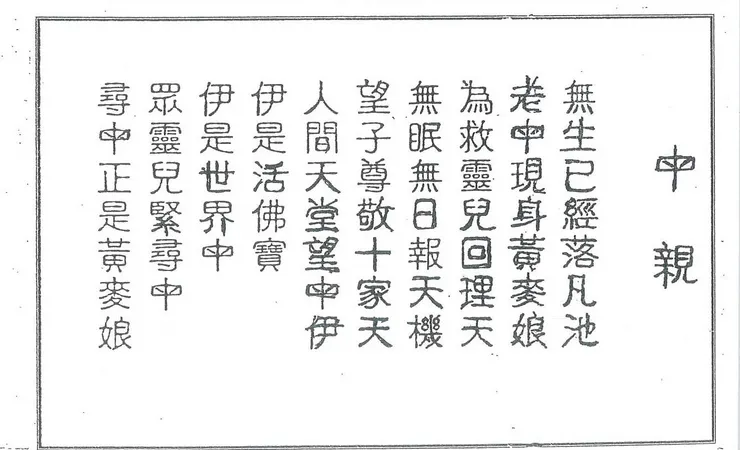 中親
無生已經落凡池
老中現身黃麥娘
為救靈兒回理天
無眠無日報天機
望子尊敬十家天
人間天堂望中伊
伊是活佛寶
伊是世界中
眾靈兒緊尋中
尋中正是黃麥娘